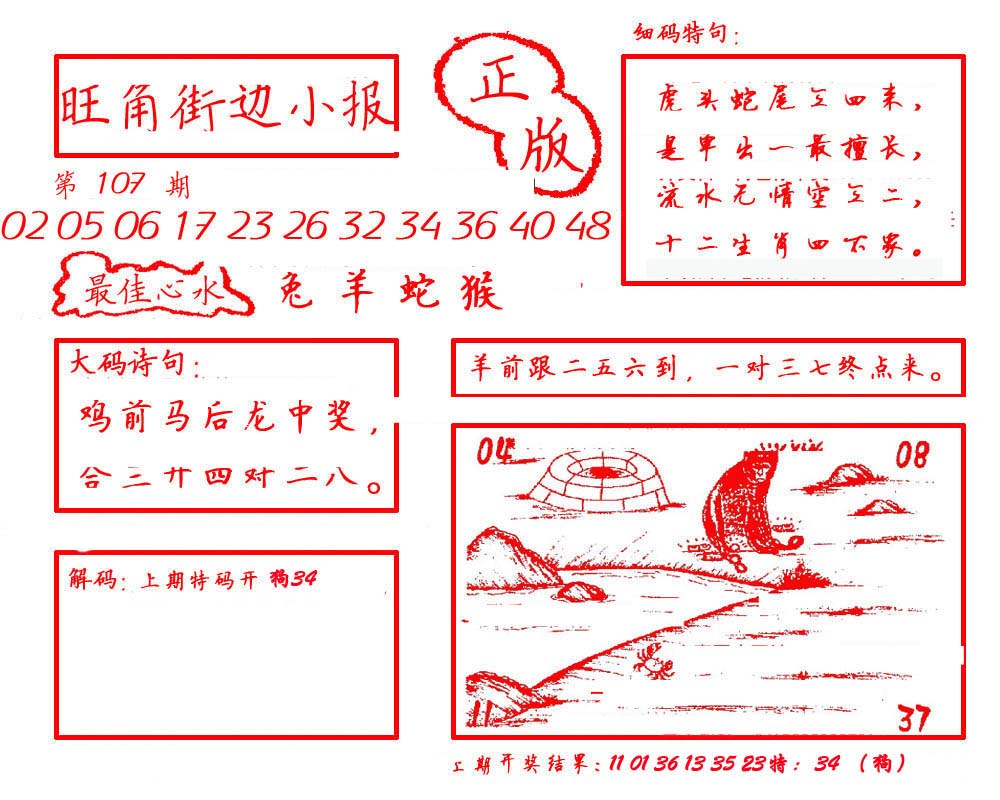 细码特句：
旺角街边小报
正版
虎头蛇尾三四来，
是单出一最擅长，
流水无情空三二，
十二生肖四不象。
第 107 期
02 05 06 17 23 26 32 34 36 40 48
最佳心水
兔羊蛇猴
大码诗句：
鸡前马后龙中奖，
合三廿四对二八。
羊前跟二五六到，一对三七终点来。
04
08
11
37
解码：上期特码开 狗34
上期开奖结果：11 01 36 13 35 23特：34（狗）